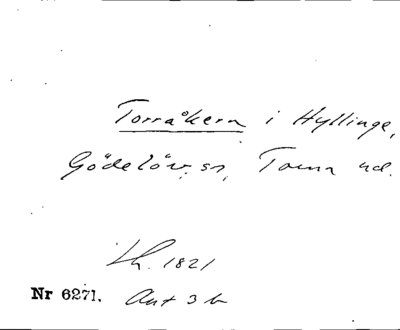 Torråkern i Hyllinge,
Gödelöv, sn, Torna hd.
Lh. 1821
Nr 6271. Ant 3 b